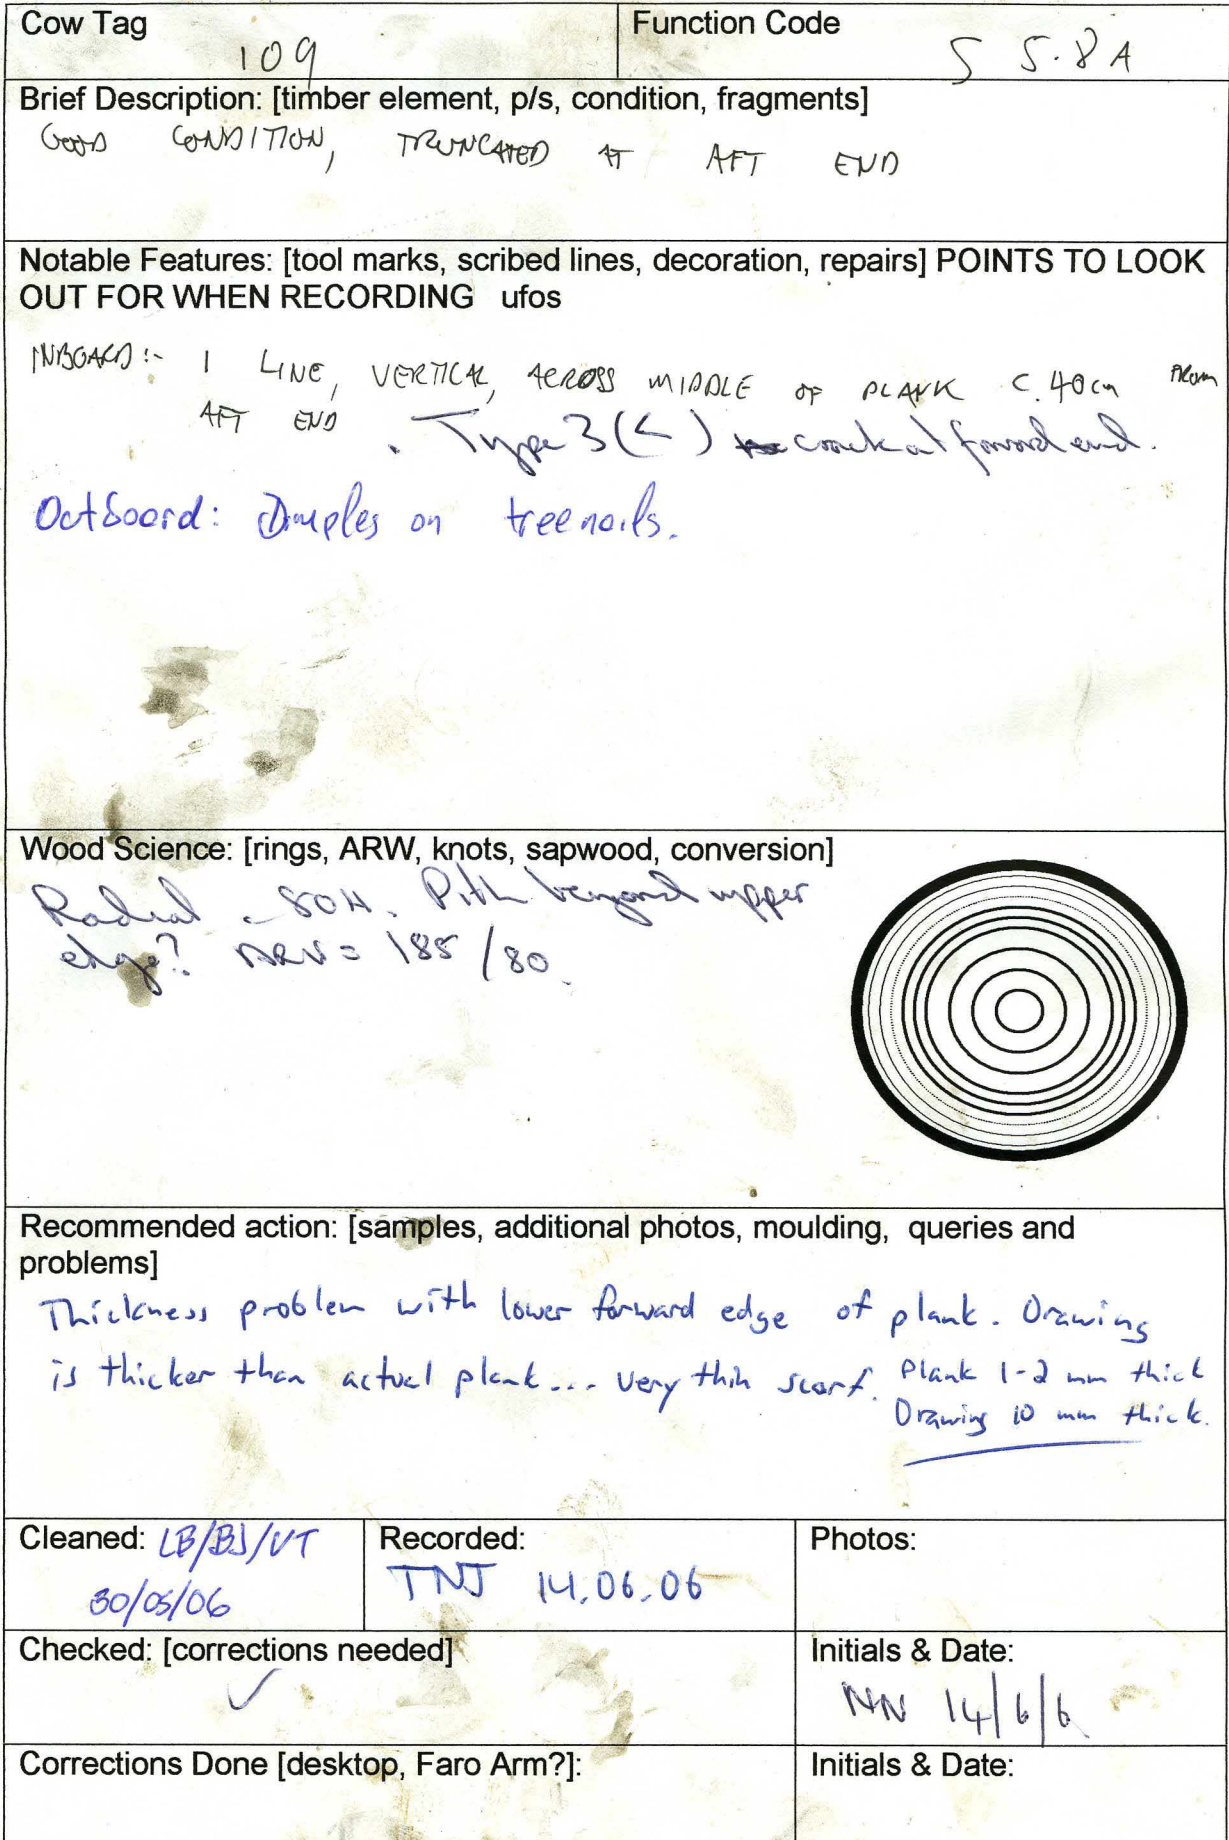 Cow Tag
109
Function Code
S 5.8A
Brief Description: [timber element, p/s, condition, fragments]
GOOD CONDITION, TRUNCATED AT AFT END
Notable Features: [tool marks, scribed lines, decoration, repairs] POINTS TO LOOK
OUT FOR WHEN RECORDING ufos
INBOARD:- 1 LINE, VERTICAL, ACROSS MIDDLE OF PLANK C.40cm FROM
AFT END
. Type 3 (<) crack at forward end.
Outboard: Dimples on treenails.
Wood Science: [rings, ARW, knots, sapwood, conversion]
Radial. 80H. Pith beyond upper
edge? ARW = 185/80.
Recommended action: [samples, additional photos, moulding, queries and
problems]
Thickness problem with lower forward edge of plank. Drawing
is thicker than actual plank... very thin scarf. Plank 1-2 mm thick
Drawing 10 mm thick.
Cleaned: LB/BJ/VT
30/05/06
Recorded:
TNJ 14.06.06
Photos:
Checked: [corrections needed]
✓
Initials & Date:
NN 14/6/6
Corrections Done [desktop, Faro Arm?]:
Initials & Date: